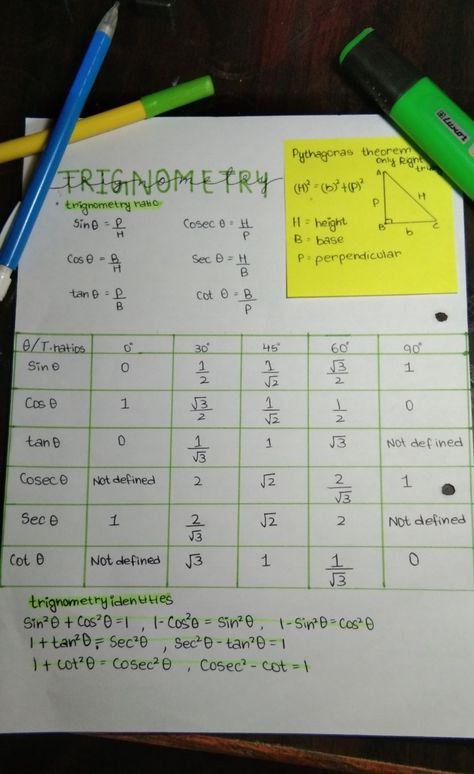 TRIGNOMETRY
• trignometry ratio
Sinθ = P/H Cosec θ = H/P
Cosθ = B/H Sec θ = H/B
tanθ = P/B Cot θ = B/P
Pythagoras theorem
only Right
(H)² = (b)² + (P)²
H = height
B = base
P = perpendicular
A
P H
B b C
θ/T.ratios 0° 30° 45° 60° 90°
Sinθ 0 1/2 1/√2 √3/2 1
Cosθ 1 √3/2 1/√2 1/2 0
tanθ 0 1/√3 1 √3 Not defined
Cosecθ Not defined 2 √2 2/√3 1
Secθ 1 2/√3 √2 2 Not defined
Cotθ Not defined √3 1 1/√3 0
trignometry identities
Sin²θ + Cos²θ = 1 , 1-Cos²θ = Sin²θ , 1-Sin²θ = Cos²θ
1 + tan²θ = Sec²θ , Sec²θ - tan²θ = 1
1 + Cot²θ = Cosec²θ , Cosec² - Cot = 1